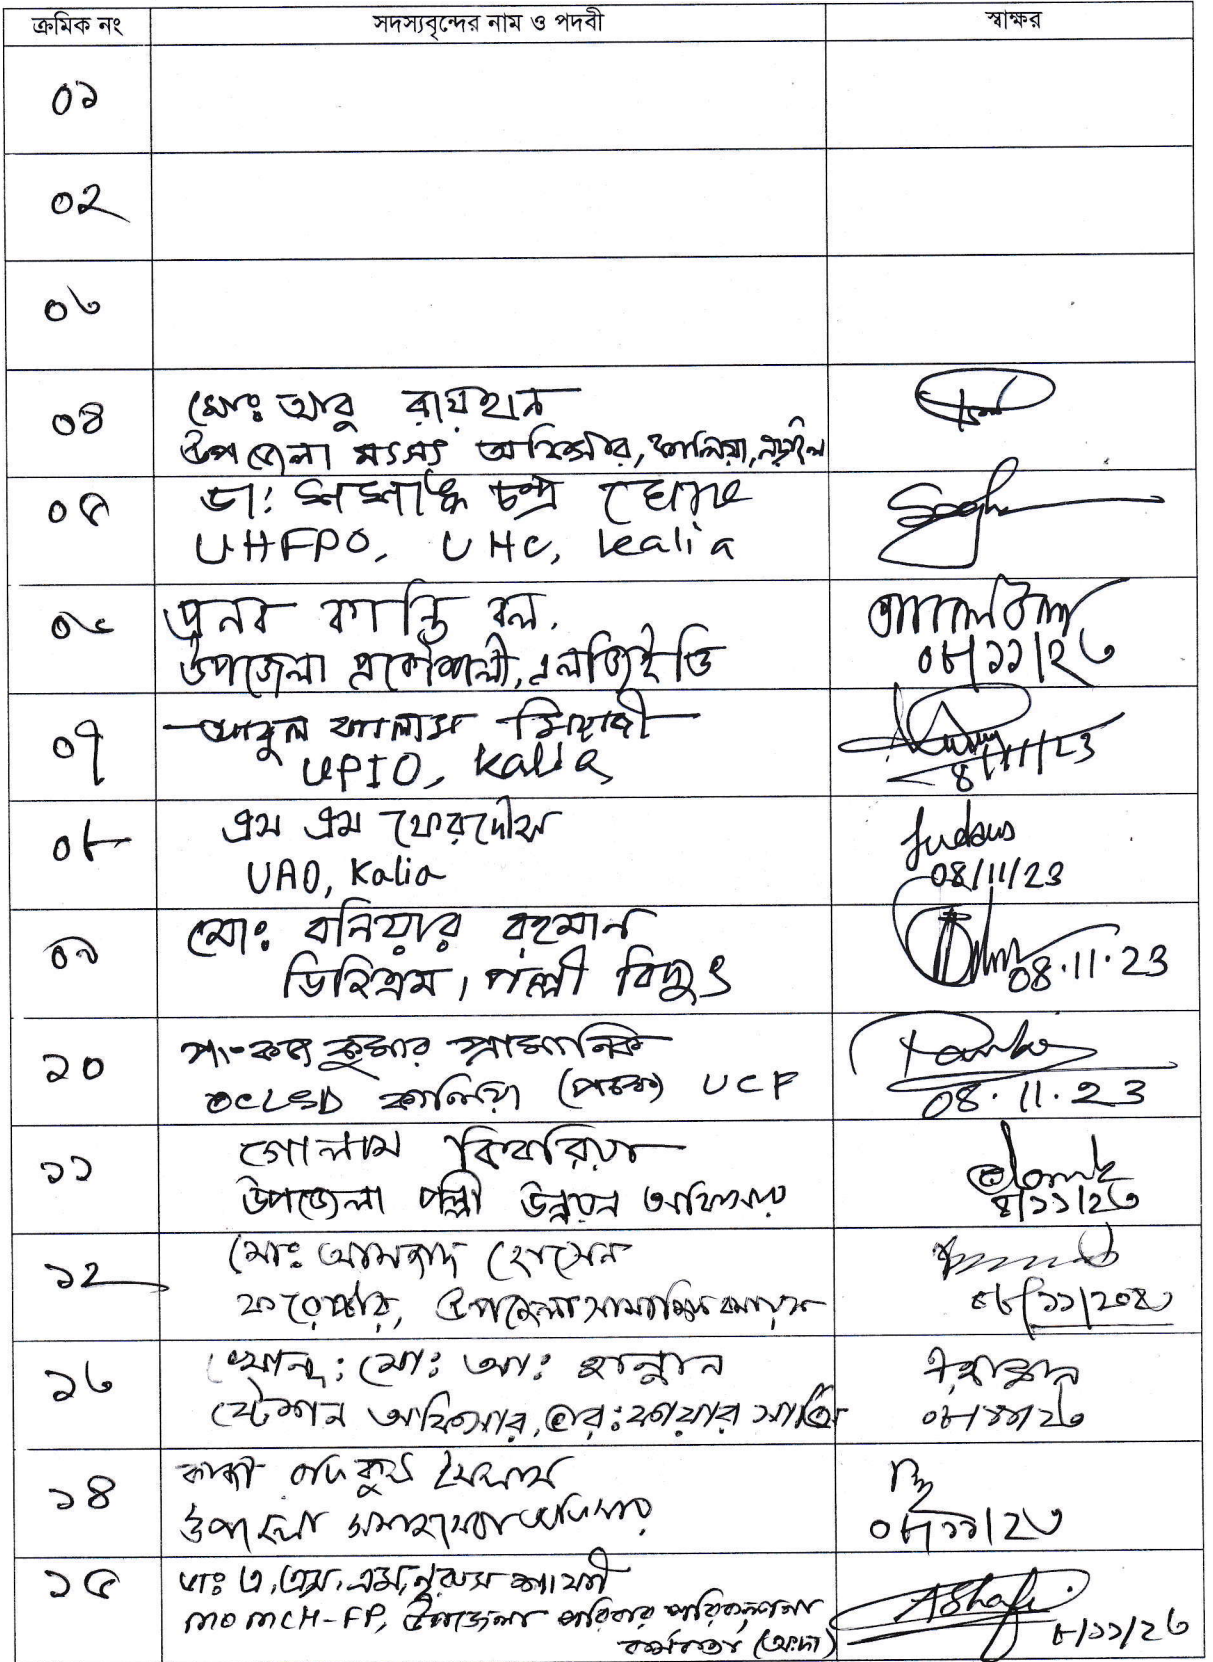 ক্রমিক নং সদস্যবৃন্দের নাম ও পদবী স্বাক্ষর
০১
০২
০৩
০৪ মোঃ আবু রায়হান
উপজেলা মৎস্য অফিসার, কালিয়া, নড়াইল
০৫ ডা: শশাঙ্ক চন্দ্র ঘোষ
UHFPO, UHC, Kalia
০৬ প্রনব কান্তি বল,
উপজেলা প্রকৌশলী, এলজিইডি
০৮/১১/২৩
০৭ আবুল কালাম
UPIO, Kalia
8/11/23
০৮ এম এম ফেরদৌস
UAO, Kalia
08/11/23
০৯ মোঃ বনিয়ার রহমান
ডিজিএম, পল্লী বিদ্যুৎ
08.11.23
১০ কুমার প্রামানিক
OCLSD কালিয়া UCF
08.11.23
১১ গোলাম কিবরিয়া
উপজেলা পল্লী উন্নয়ন অফিসার
৪/১১/২৩
১২ মোঃ আমজাদ হোসেন
ফরেস্টার, উপজেলা
১৩ মো: আ: হান্নান
স্টেশন অফিসার, ফায়ার সার্ভিস
০৮/১১/২৩
১৪ কাজী
উপজেলা
০৮/১১/২৩
১৫ ডাঃ এ, এস, এম, নুরুস শাফী
MOMCH-FP, উপজেলা পরিবার পরিকল্পনা
কর্মকর্তা
AShafi
৮/১১/২৩